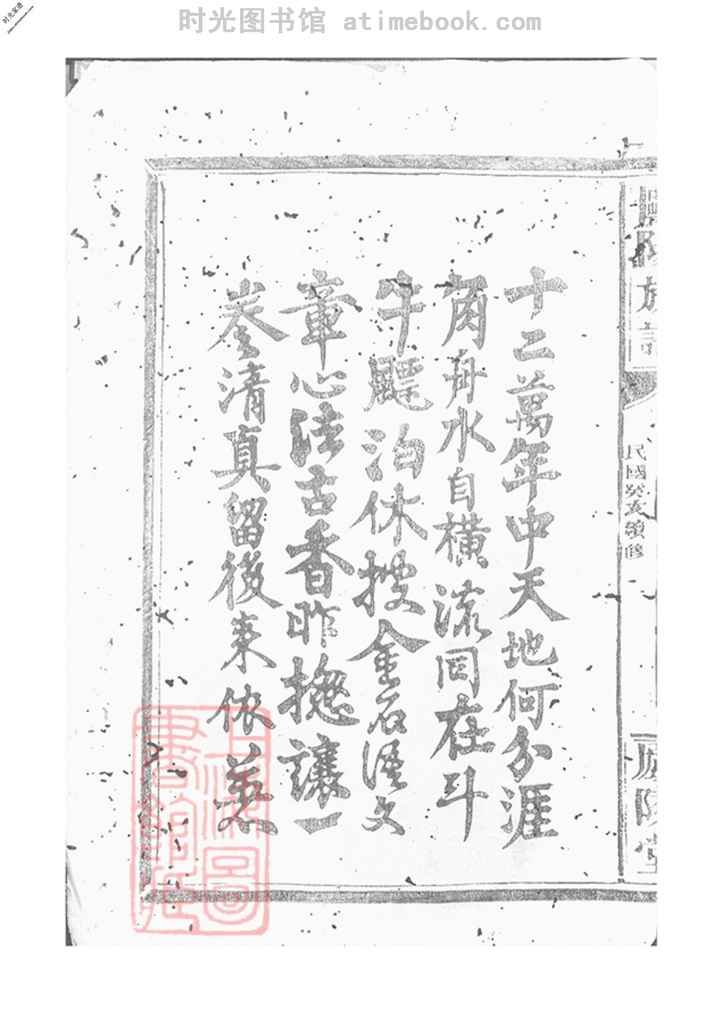 时光图书馆 atimebook.com
十二萬年中天地何分涯
舟水自橫流同在斗
牛飃泊休搜金石語文
章心法古香昨撫讓一
叅清真留後来依慕
族譜
民國癸亥續修
上海圖書館藏